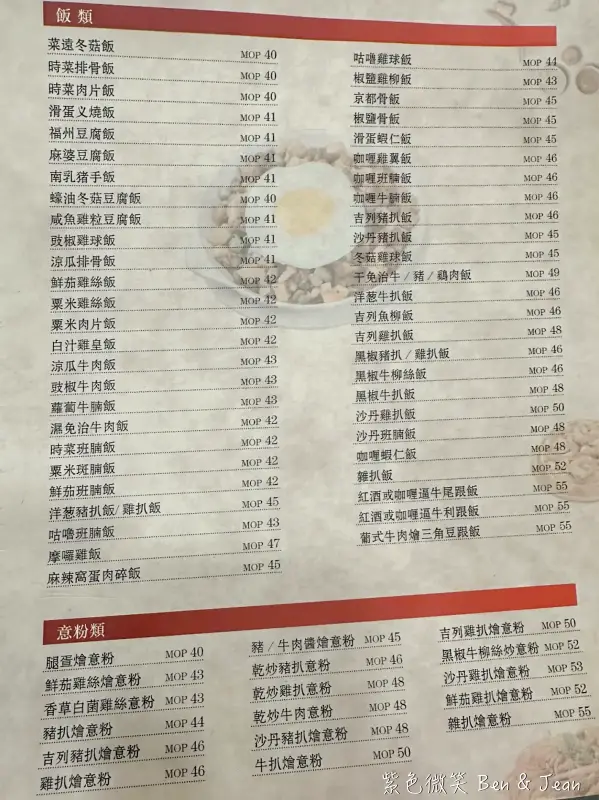 飯類
菜遠冬菇飯 MOP 40
時菜排骨飯 MOP 40
時菜肉片飯 MOP 40
滑蛋义燒飯 MOP 41
福州豆腐飯 MOP 41
麻婆豆腐飯 MOP 41
南乳猪手飯 MOP 41
蠔油冬菇豆腐飯 MOP 40
咸魚雞粒豆腐飯 MOP 41
豉椒雞球飯 MOP 41
涼瓜排骨飯 MOP 41
鮮茄雞絲飯 MOP 42
粟米雞絲飯 MOP 42
粟米肉片飯 MOP 42
白汁雞皇飯 MOP 42
涼瓜牛肉飯 MOP 43
豉椒牛肉飯 MOP 43
蘿蔔牛腩飯 MOP 43
濕免治牛肉飯 MOP 42
時菜班腩飯 MOP 42
粟米斑腩飯 MOP 42
鮮茄班腩飯 MOP 42
洋葱豬扒飯/雞扒飯 MOP 45
咕嚕班腩飯 MOP 43
摩囉雞飯 MOP 47
麻辣窩蛋肉碎飯 MOP 45
咕嚕雞球飯 MOP 44
椒鹽雞柳飯 MOP 43
京都骨飯 MOP 45
椒鹽骨飯 MOP 45
滑蛋蝦仁飯 MOP 45
咖喱雞翼飯 MOP 46
咖喱班腩飯 MOP 46
咖喱牛腩飯 MOP 46
吉列豬扒飯 MOP 46
沙丹豬扒飯 MOP 45
冬菇雞球飯 MOP 45
干免治牛/豬/鷄肉飯 MOP 49
洋葱牛扒飯 MOP 46
吉列魚柳飯 MOP 46
吉列雞扒飯 MOP 48
黑椒豬扒/雞扒飯 MOP 46
黑椒牛柳絲飯 MOP 46
黑椒牛扒飯 MOP 48
沙丹雞扒飯 MOP 50
沙丹班腩飯 MOP 48
咖喱蝦仁飯 MOP 48
雜扒飯 MOP 52
紅酒或咖喱逼牛尾跟飯 MOP 55
紅酒或咖喱逼牛利跟飯 MOP 55
葡式牛肉燴三角豆跟飯 MOP 55
意粉類
腿疍燴意粉 MOP 40
鮮茄雞絲燴意粉 MOP 43
香草白菌雞絲意粉 MOP 43
豬扒燴意粉 MOP 44
吉列豬扒燴意粉 MOP 46
雞扒燴意粉 MOP 46
豬/牛肉醬燴意粉 MOP 45
乾炒豬扒意粉 MOP 46
乾炒雞扒意粉 MOP 48
乾炒牛肉意粉 MOP 48
沙丹豬扒燴意粉 MOP 48
牛扒燴意粉 MOP 50
吉列雞扒燴意粉 MOP 50
黑椒牛柳絲炒意粉 MOP 52
沙丹雞扒燴意粉 MOP 53
鮮茄雞扒燴意粉 MOP 52
雜扒燴意粉 MOP 55
紫色微笑 Ben & Jean